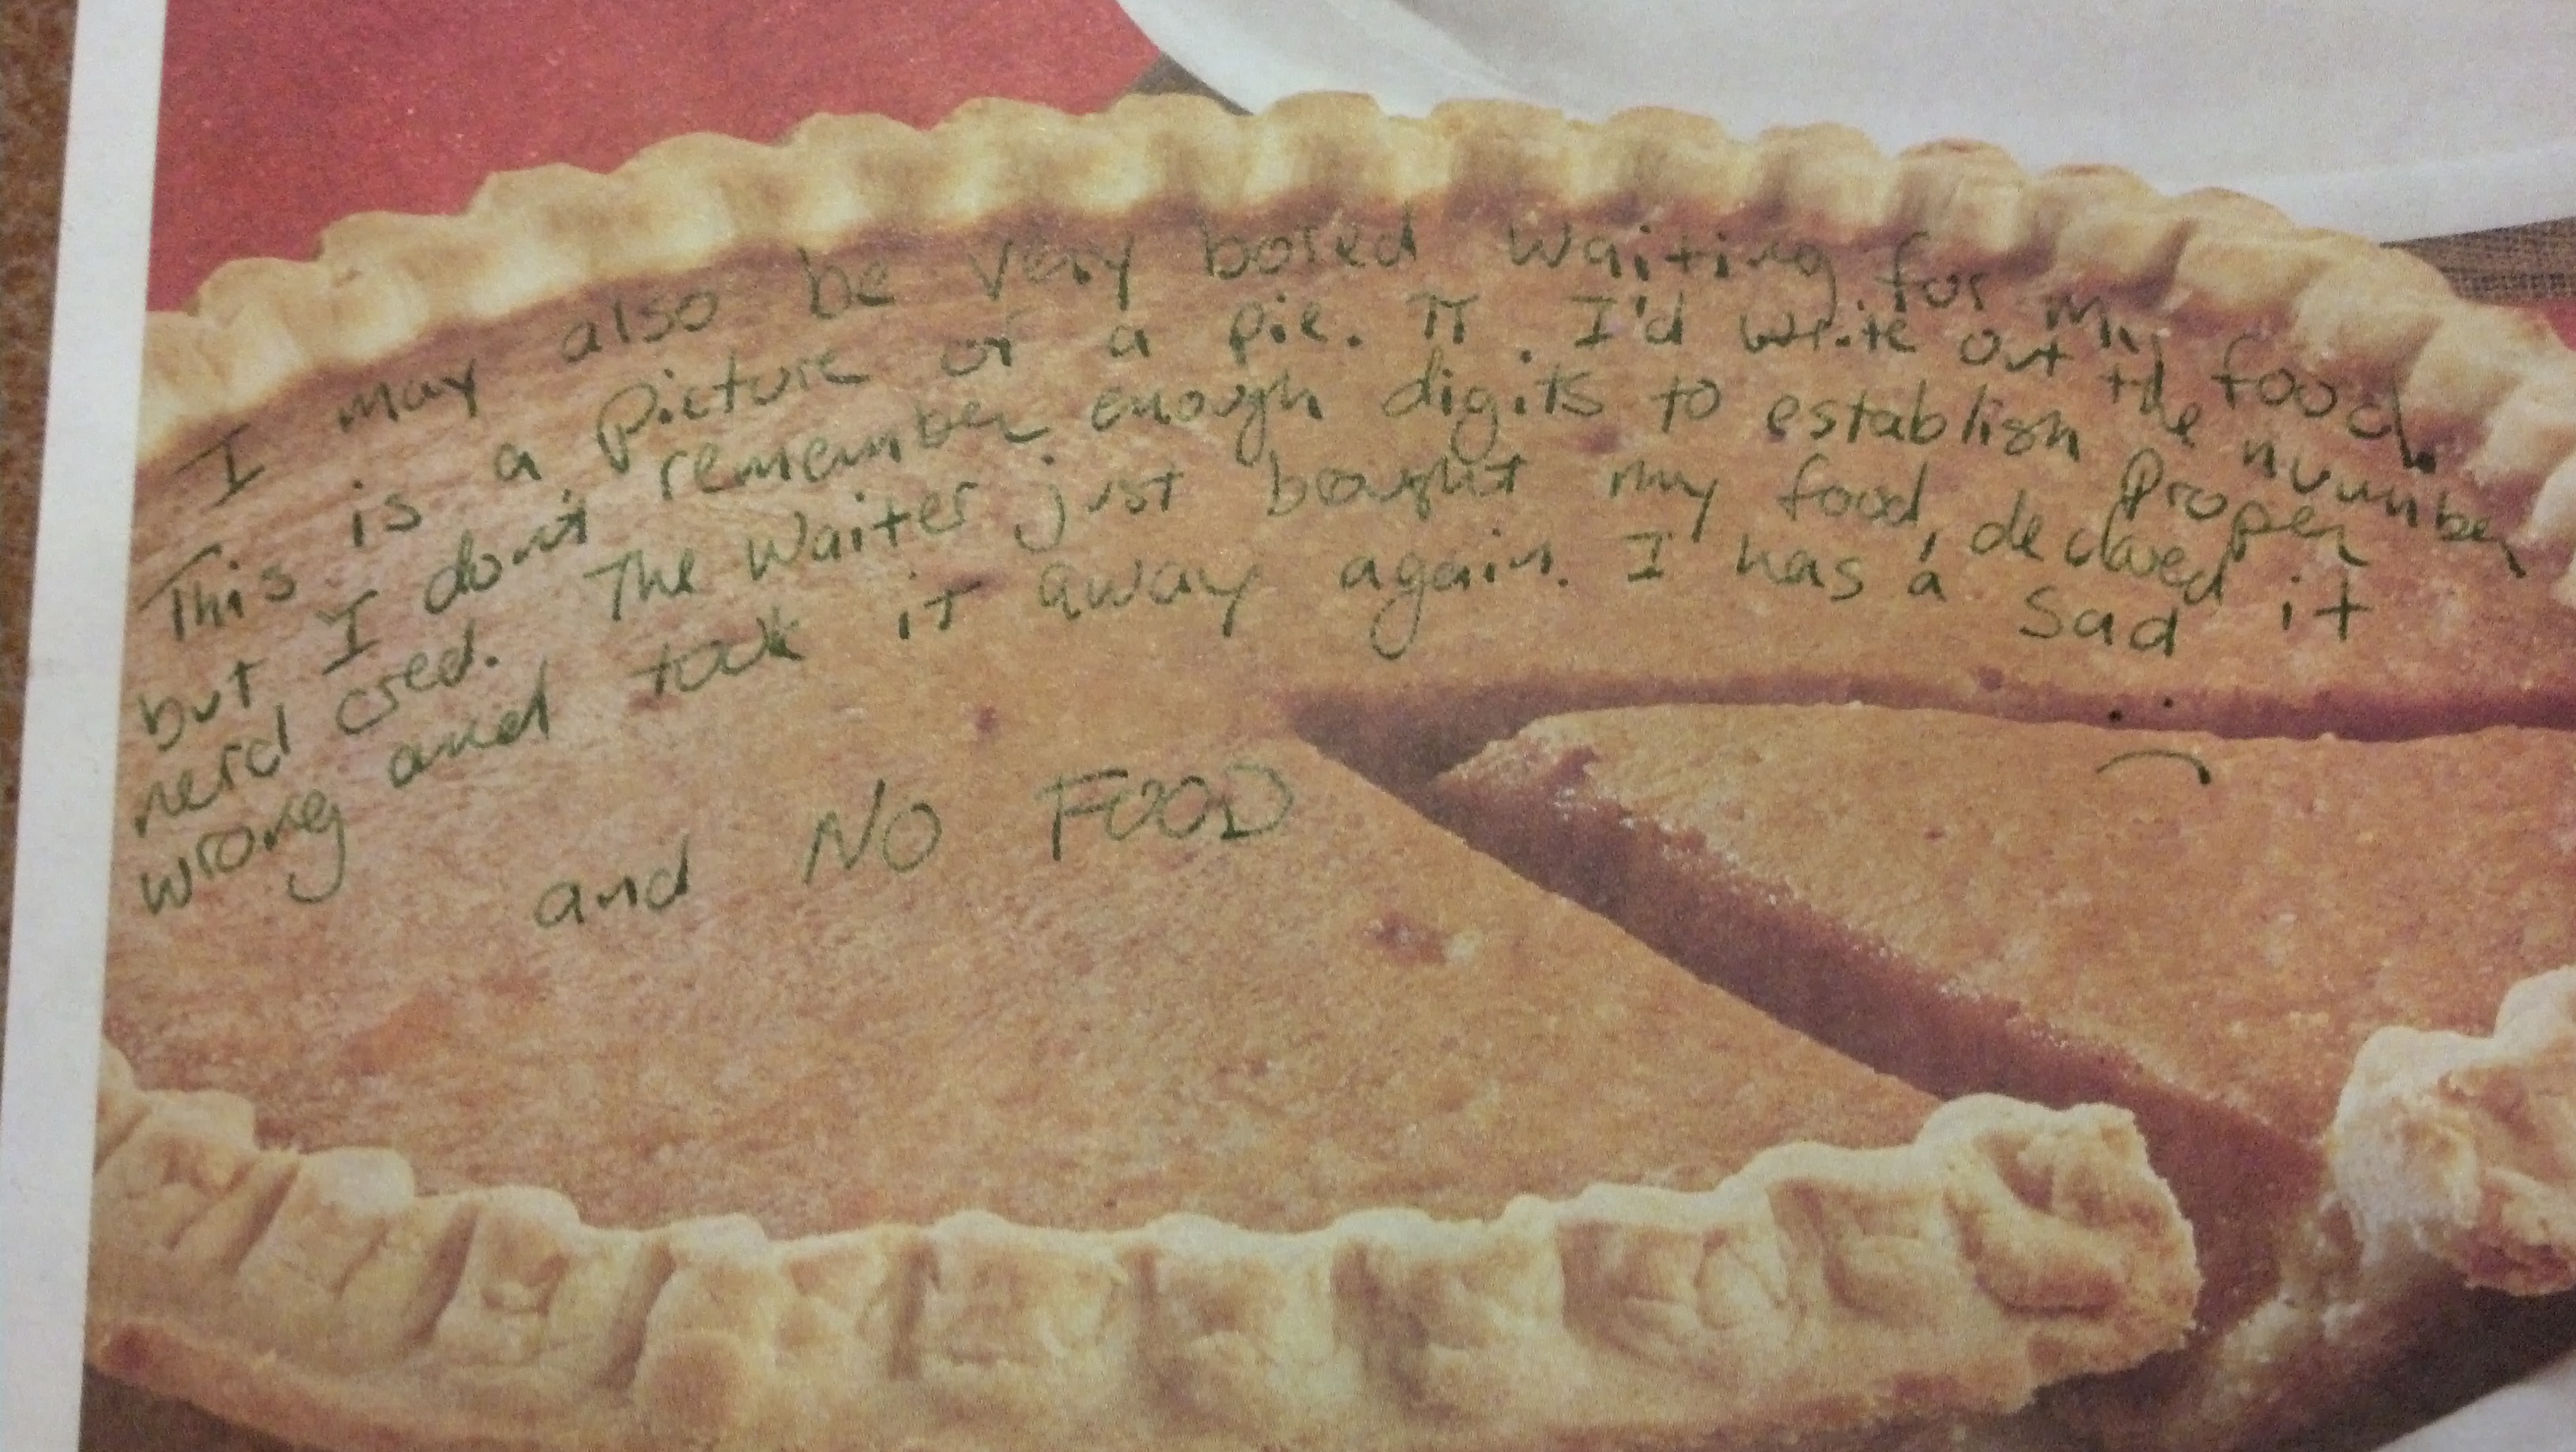 I may also be very bored waiting for my food.
This is a picture of a pie. π . I'd write out the number
but I don't remember enough digits to establish proper
nerd cred. The waiter just bought my food, declared it
wrong and took it away again. I has a sad
:(
and NO FOOD